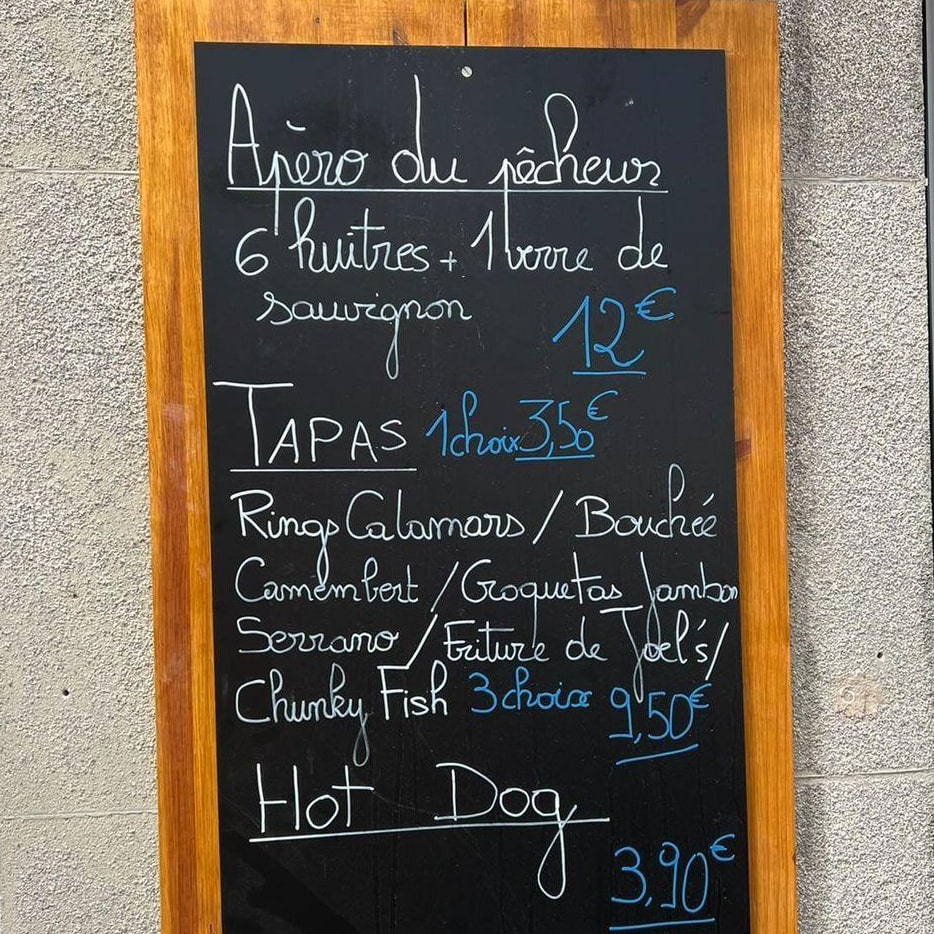 Apèro du pêcheur
6 huitres + 1 verre de
sauvignon 12€
TAPAS 1 choix 3,50€
Rings Calamars / Bouchée
Camembert / Croquetas Jambon
Serrano / Friture de Joel's /
Chunky Fish 3 choix 9,50€
Hot Dog
3,90€